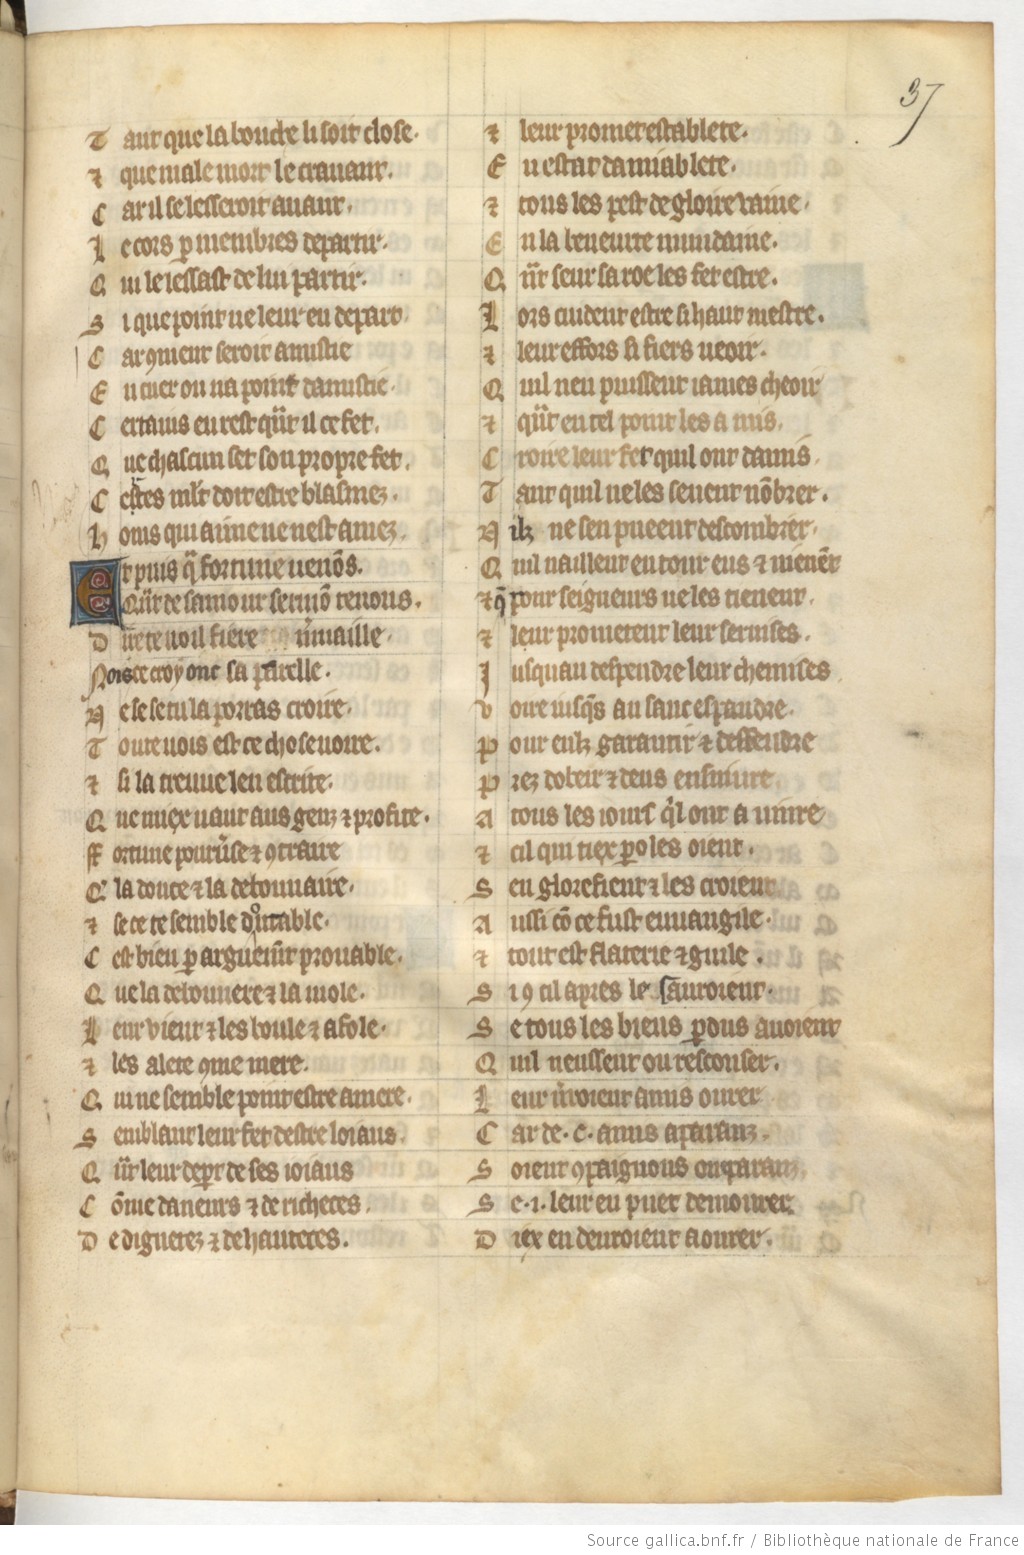 37
T ant que la bouche li soit close.
⁊ que male mort le cravant.
C ar il se lesseroit avant.
L e cors p membres departir.
Q ui le lessast de lui partir.
S i que point ne leur en depart
C ar ꝯment seroit amistie
E n cuer ou na point damistie.
C ertains en rest qͥnt il ce fet.
Q ue chascun set son propre fet.
C estes ml̃t doit estre blasmez.
h oms qui aime ne nest amez.
E t puis q̃ fortune venõs.
Q ͣnt de samour sermõ tenons.
D
Nois ce croy onc sa parelle.
N e se se tu la porras croire.
T oute vois est ce chose voire.
⁊ si la treuve len escrite.
Q ue miex vaut aus genz ⁊ profite.
ff ortune pouruse ⁊ ꝯtraire
Q̃ la douce ⁊ la debonnaire.
⁊ se ce te semble doutable.
C est bien p argument provable.
Q ue la debonnere ⁊ la mole.
L eur vient ⁊ les boule ⁊ afole.
⁊ les alete ꝯme mere.
Q ui ne semble point estre amere.
S emblant leur fet destre loiaus.
Q ͣnt leur depͣrt de ses ioiaus
C õme daneurs ⁊ de richeces.
D e dignetez ⁊ de hauteces.
⁊ leur promet establete.
E n estat damiablete.
⁊ tous les pest de gloire vaine.
E n la beneurte mundaine.
Q ͣnt seur sa roe les fet estre.
L ors cuident estre si haut mestre.
⁊ leur effors si fiers veoir.
Q uil nen puissent iames cheoir
⁊ qͣnt en tel point les a mis.
C roire leur fet quil ont damis.
T ant quil ne les sevent nõbrer.
N ilz ne sen pueent descombrer.
Q uil naillent en tour eus ⁊ viengnent
⁊ q̃ pour seigneurs ne les tienent.
⁊ leur prometent leur servises.
J usquau despendre leur chemises
V oire iusqs au sanc espandre.
P our eulz garantir ⁊ deffendre
P rez dobeir ⁊ deus ensuivre
A tous les iours ql ont a vivre
⁊ cil qui tiex poles oient.
S en glorefient ⁊ les croient
A ussi cõ ce fust euvangile.
⁊ tout est flaterie ⁊ guile.
S i ꝯ cil apres le sauroient.
S e tous les biens pdus avoient
Q uil neussent ou resconser.
L eur verroient amis ouvrer
C ar de .c. amis aparanz.
S oient ꝯpaignons ou paranz
S e .i. leur en puet demourer.
D iex en devroient aourer.
Source gallica.bnf.fr / Bibliothèque nationale de France